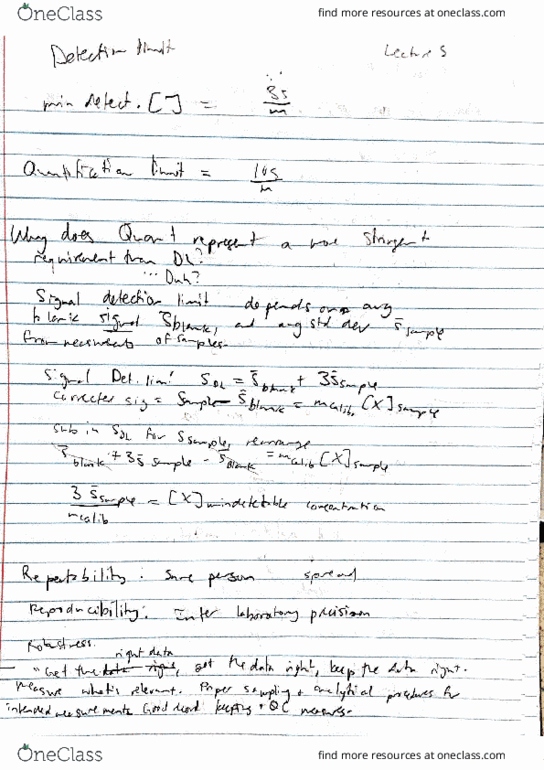 OneClass
find more resources at oneclass.com
Detection limit
Lecture 5
min detect. [ ] = 3s/m
Quantification limit = 10s/m
Why does Quant represent a more stringent
requirement than DL?
... Duh?
Signal detection limit depends on avg
signal Sblank, and avg std dev s̄sample
from measurements of samples.
Signal Det. limit SDL = S̄blank + 3s̄sample
corrected sig = Ssample - S̄blank = mcalib [X]sample
sub in SDL for Ssample, rearrange
S̄blank + 3s̄sample - S̄blank = mcalib [X]sample
3 s̄sample/mcalib = [X] min detectable concentration
Repeatability: Same person spread
Reproducibility: Inter laboratory precision
Robustness.
right data
"Get the data right, get the data right, keep the data right.
Measure what's relevant. Proper sampling + analytical procedures for
intended measurements. Good record keeping + QC measures.
OneClass
find more resources at oneclass.com